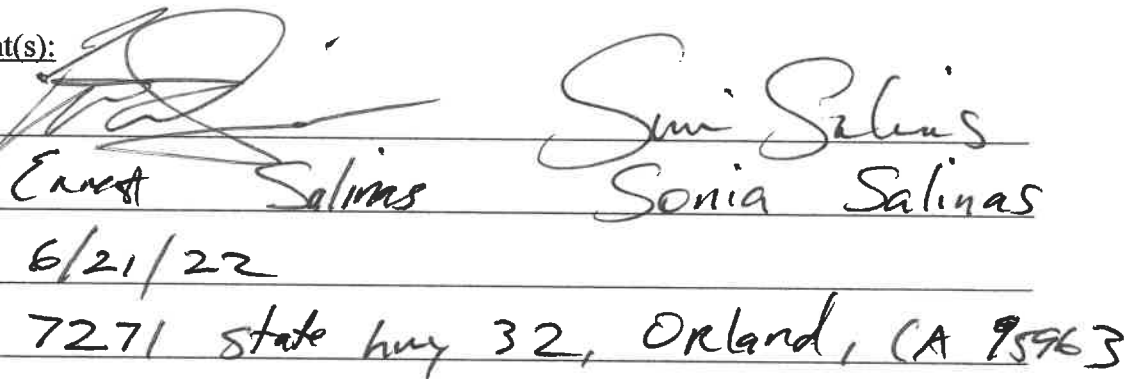 nt(s):
Soni Salinas
Ernest Salinas Sonia Salinas
6/21/22
7271 state hwy 32, ORland, CA 95963